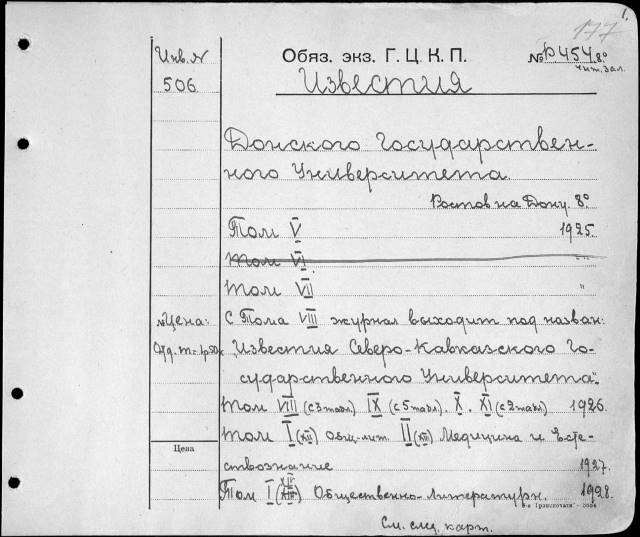 177
Инв. N
506
Обяз. экз. Г. Ц. К. П.
№ P454 8°
чит. зал.
Известия
Донского Государствен-
ного Университета.
Ростов на Дону. 8°
Том V 1925.
Том VI "
Том VII "
Цена: С Тома VIII журнал выходит под назван:
Отд. т = 1р50к „Известия Северо-Кавказского Го-
сударственного Университета".
Том VIII (с 3 табл.) IX (с 5 табл.). X. XI (с 2 табл.) 1926.
Том I (XII) Общ.-лит. II (XIII) Медицина и Есте-
Цена
ствознание 1927.
Том I Общественно-Литературн. 1928.
См. след. карт.